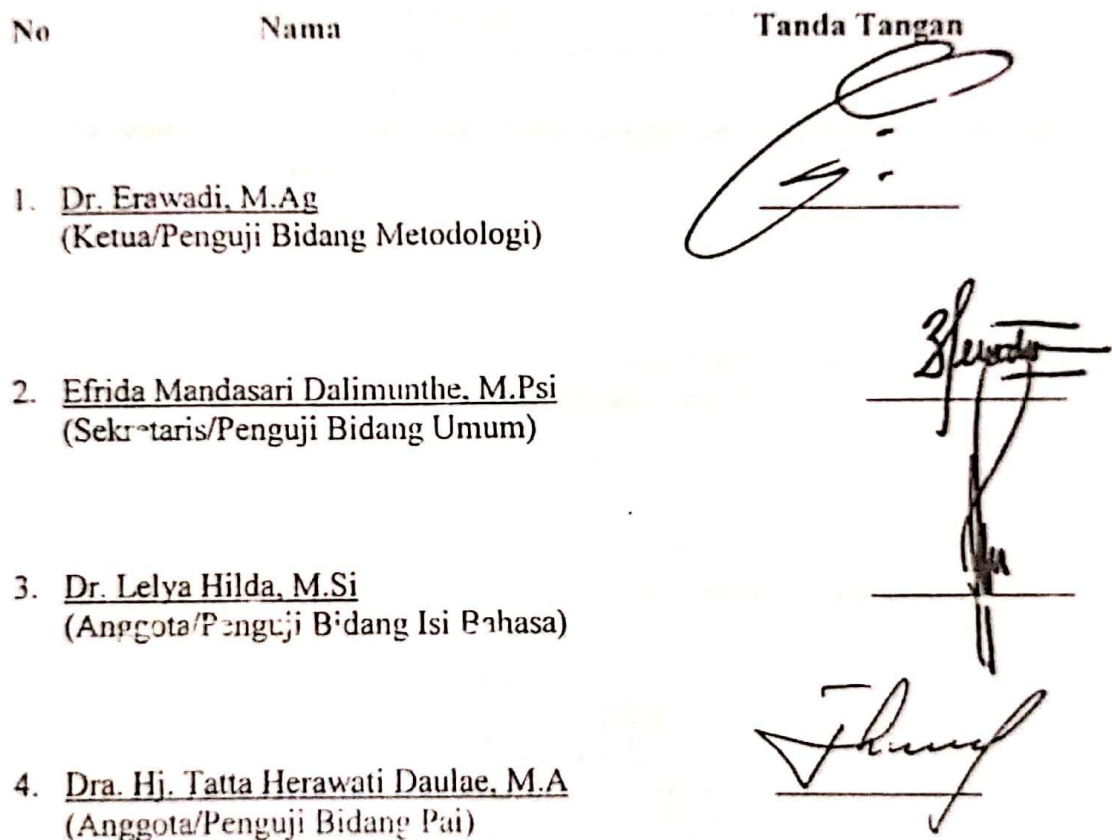 No Nama Tanda Tangan
1. Dr. Erawadi, M.Ag
(Ketua/Penguji Bidang Metodologi)
2. Efrida Mandasari Dalimunthe, M.Psi
(Sekretaris/Penguji Bidang Umum)
3. Dr. Lelya Hilda, M.Si
(Anggota/Penguji Bidang Isi Bahasa)
4. Dra. Hj. Tatta Herawati Daulae, M.A
(Anggota/Penguji Bidang Pai)